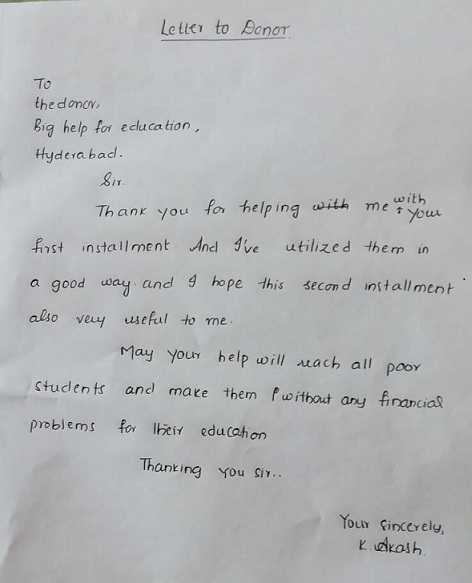 Letter to Donor
To
the donor,
Big help for education,
Hyderabad.
Sir.
Thank you for helping with me with your
first installment. And I've utilized them in
a good way. and I hope this second installment
also very useful to me.
May your help will reach all poor
students and make them without any financial
problems for their education
Thanking you sir..
Your sincerely,
K. Akash.